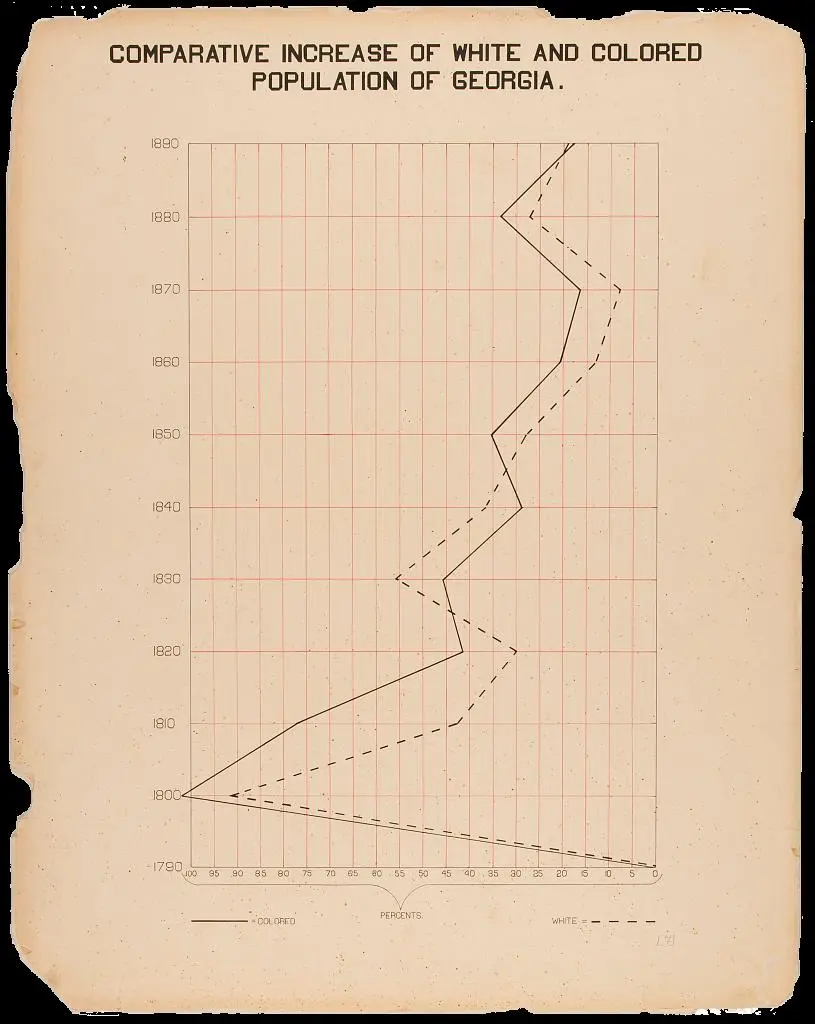 COMPARATIVE INCREASE OF WHITE AND COLORED
POPULATION OF GEORGIA.
1890
1880
1870
1860
1850
1840
1830
1820
1810
1800
1790
100 95 90 85 80 75 70 65 60 55 50 45 40 35 30 25 20 15 10 5 0
PERCENTS.
= COLORED
WHITE =